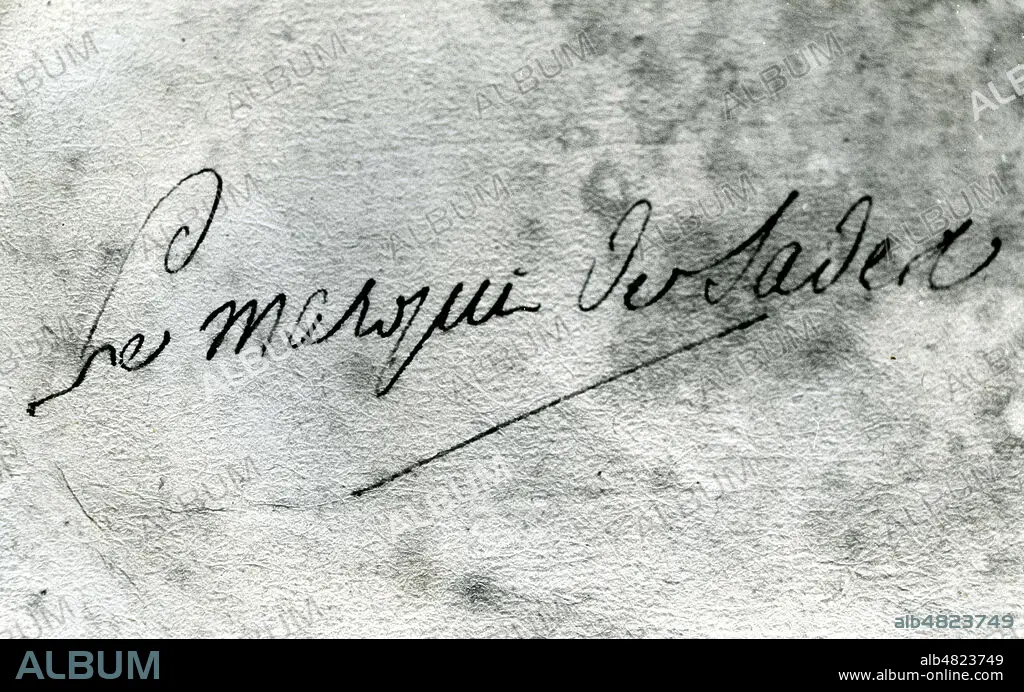 Le marquis de Sade
ALBUM
alb4823749
ALBUM
alb4823749
www.album-online.com